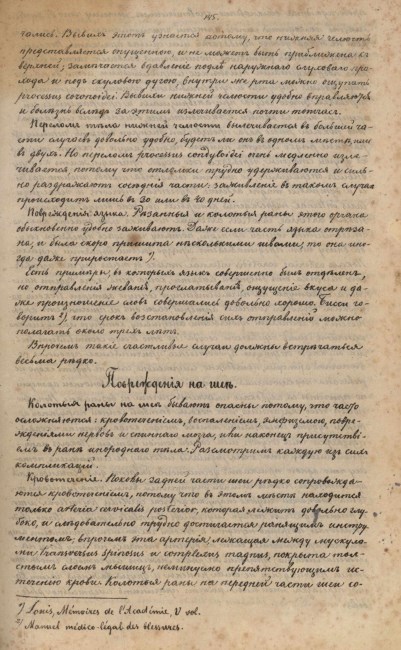 145.
чалась. Вывихъ этотъ узнается потому, что нижняя челюсть
представляется опущенною, и не можетъ быть приближена къ
верхней; замѣчается вдавленіе подлѣ наружнаго слуховаго про-
хода и подъ скуловою дугою, внутри же рта можно ощупать
processus coronoidei. Вывихи нижней челюсти удобно вправляются
и болѣзнь вслѣдъ за этимъ излечивается почти тотчасъ.
Переломъ тѣла нижней челюсти вылечивается въ большей ча-
сти случаевъ довольно удобно, будетъ ли онъ въ одномъ мѣстѣ, или
въ двухъ. Но переломъ processus condyloidei медленно изле-
чивается потому что отломки трудно удерживаются и силь-
но раздражаютъ сосѣднія части: заживленіе въ такомъ случаѣ
происходитъ лишь въ 30 или въ 40 дней.
Поврежденія языка. Рѣзанныя и колотыя раны этого органа
обыкновенно удобно заживаютъ. Даже если часть языка отрѣза-
на, и была скоро пришита нѣсколькими швами, то она ино-
гда даже приростаетъ 1).
Есть примѣры, въ которыхъ языкъ совершенно былъ отдѣленъ,
но отправленія жеванія, проглатыванія, ощущеніе вкуса и да-
же произношеніе словъ совершались довольно хорошо. Биссе го-
воритъ 2), что срокъ возстановленія сихъ отправленій можно
полагать около трехъ лѣтъ.
Впрочемъ такіе счастливые случаи должны встрѣчаться
весьма рѣдко.
Поврежденія на шеѣ.
Колотыя раны на шеѣ бываютъ опасны потому, что часто
осложняются: кровотеченіемъ, воспаленіемъ, эмфиземою, повре-
жденіями нервовъ и спиннаго мозга, или наконецъ присутстві-
емъ въ ранѣ инороднаго тѣла. Разсмотримъ каждую изъ сихъ
компликацій.
Кровотеченіе. Поколы задней части шеи рѣдко сопровожда-
ются кровотеченіемъ, потому что въ этомъ мѣстѣ находится
только arteria cervicalis posterior, которая лежитъ довольно глу-
боко, и слѣдовательно трудно достигается ранящимъ инстру-
ментомъ; впрочемъ эта артерія, лежащая между мускула-
ми transversus spinosus и complexus magnus, покрыта тол-
стымъ слоемъ мышицъ, неминуемо препятствующимъ ис-
теченію крови. Колотыя раны на передней части шеи со-
1) Louis, Mémoires de l'Académie, V vol.
2) Manuel médico-légal des blessures.